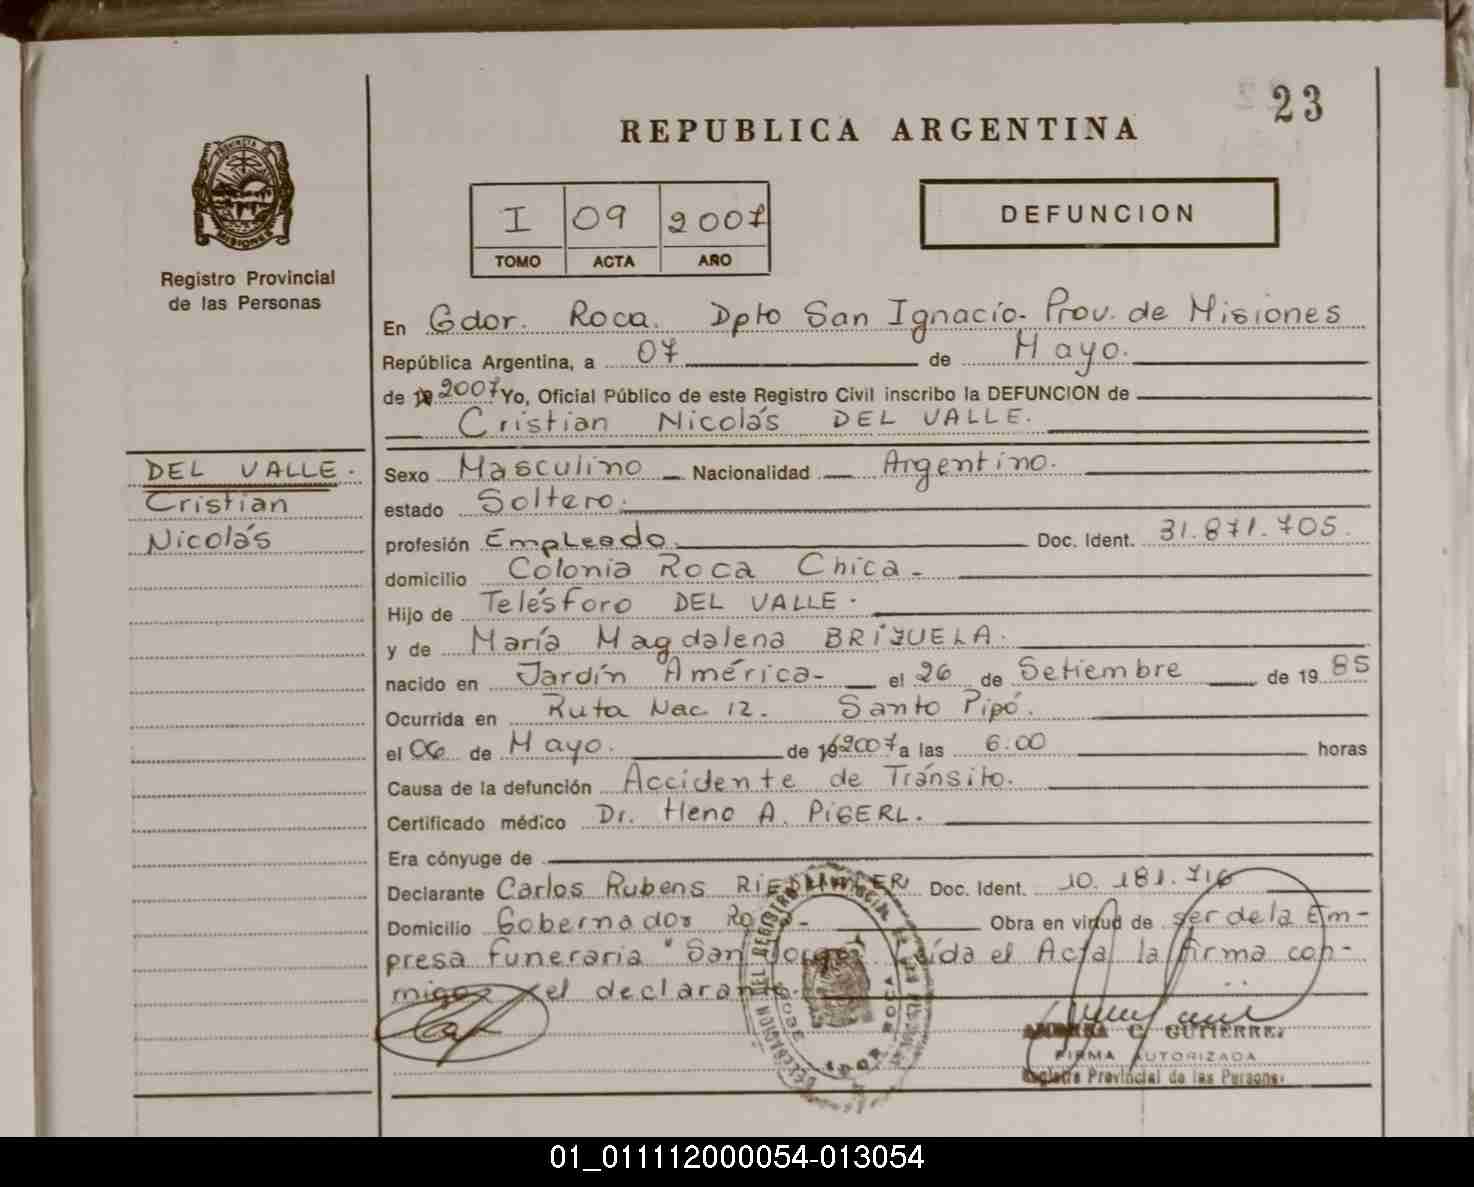 23
REPUBLICA ARGENTINA
I 09 2007
TOMO ACTA AÑO
DEFUNCION
PROVINCIA DE
MISIONES
Registro Provincial
de las Personas
En Gdor. Roca. Dpto San Ignacio. Prov. de Misiones
República Argentina, a 07 de Mayo.
de 19 2007 Yo, Oficial Público de este Registro Civil inscribo la DEFUNCION de
Cristian Nicolás DEL VALLE.
DEL VALLE.
Cristian
Nicolás
Sexo Masculino Nacionalidad Argentino.
estado Soltero.
profesión Empleado. Doc. Ident. 31.871.705.
domicilio Colonia Roca Chica -
Hijo de Telésforo DEL VALLE.
y de María Magdalena BRIZUELA.
nacido en Jardín América- el 26 de Setiembre de 19 85
Ocurrida en Ruta Nac 12. Santo Pipó.
el 06 de Mayo. de 19 2007 a las 6:00 horas
Causa de la defunción Accidente de Tránsito.
Certificado médico Dr. Heno A. PIGERL.
Era cónyuge de
Declarante Carlos Rubens Doc. Ident. 10.181.716
Domicilio Gobernador Obra en virtud de ser de la Em-
presa funeraria "San Jorge" el Acta la firma con-
migo el declarante.
C. GUTIERREZ
FIRMA AUTORIZADA
Registro Provincial de las Personas
01_011112000054-013054